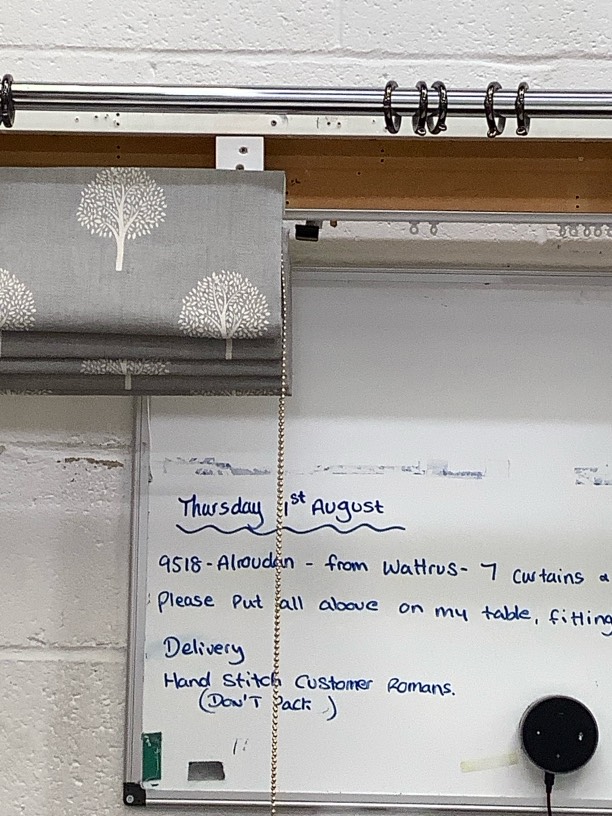 Thursday 1st August
9518 - Alroudan - from Wattrus - 7 Curtains &
Please Put all above on my table, fitting
Delivery
Hand Stitch Customer Romans.
(Don't Pack)